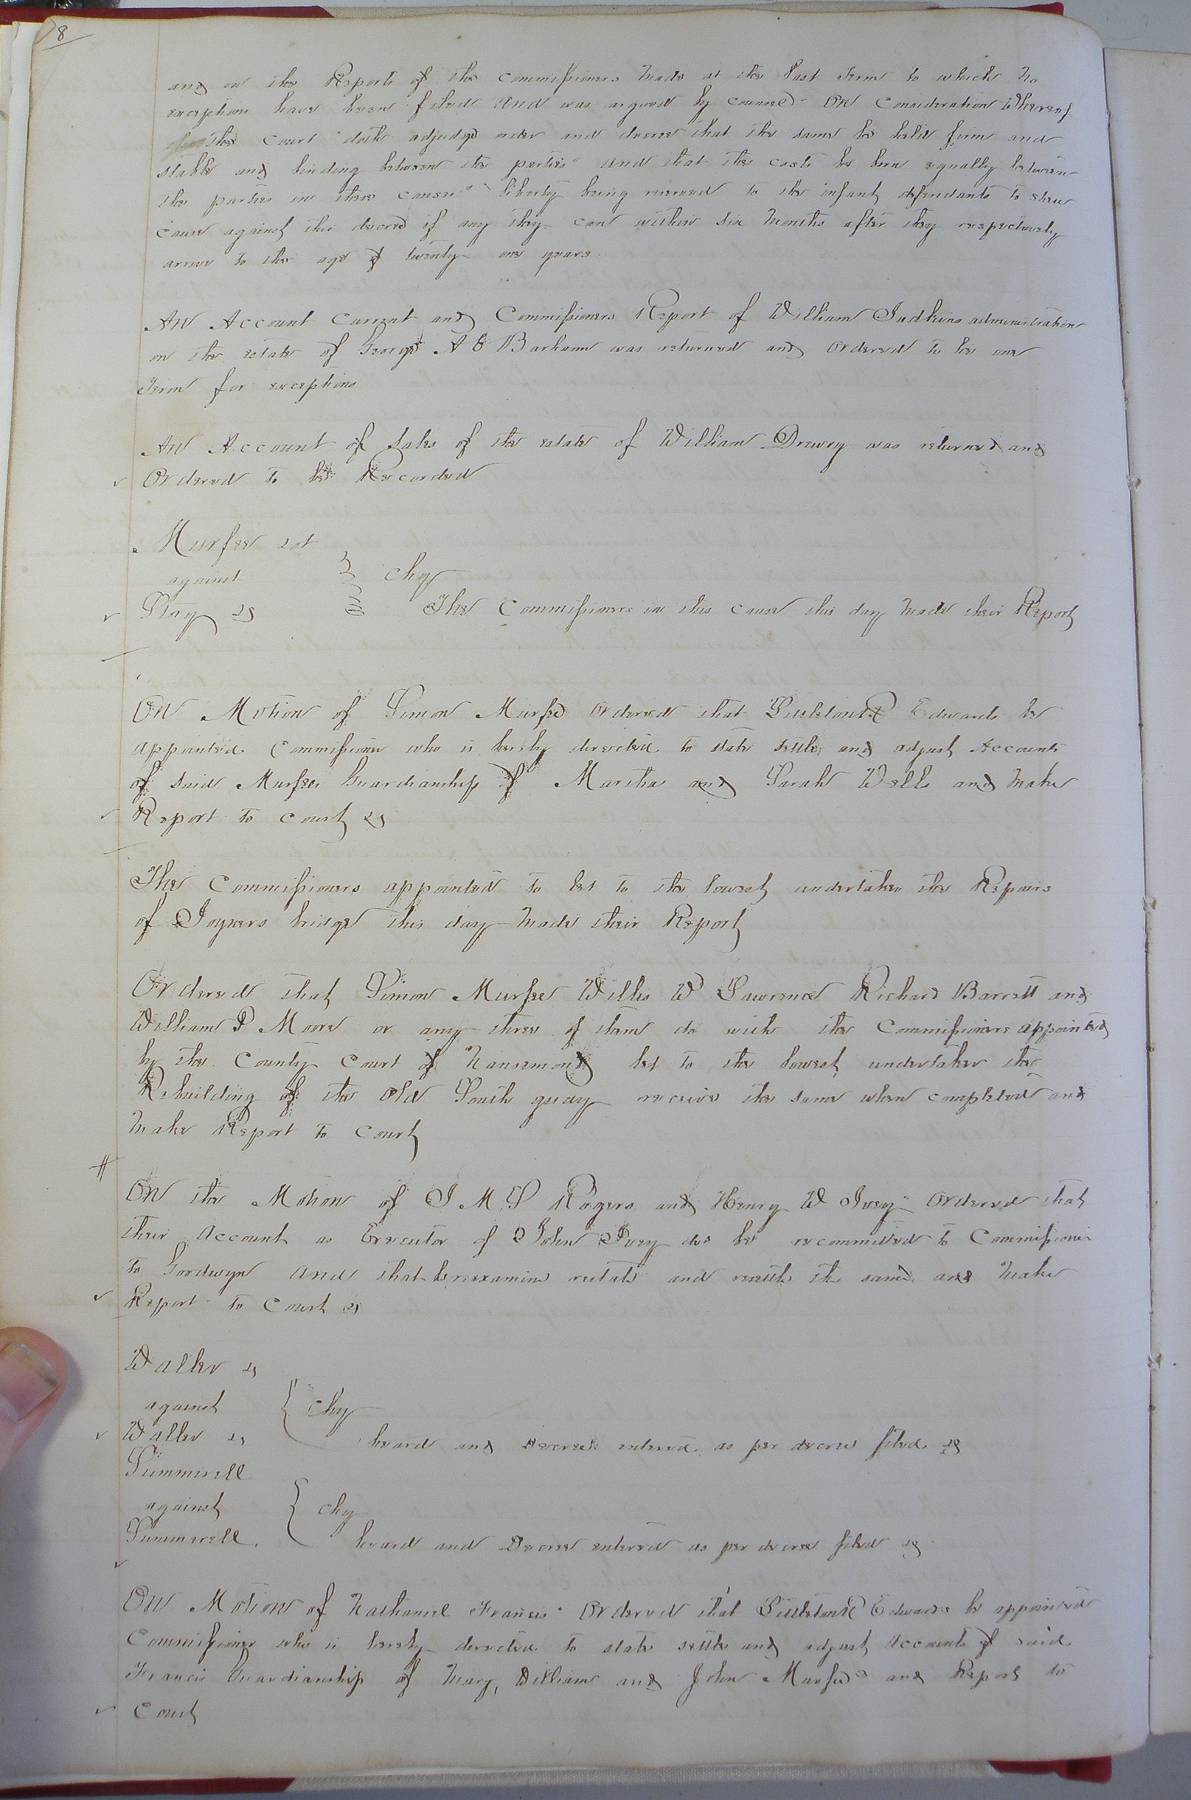 8
and on the Report of the Commissioners made at the last Term to which no
exceptions have been filed and was argued by counsel On Consideration Whereof
the Court doth adjudge order and decree that the same be held firm and
stable and binding between the parties and that the costs be born equally between
the parties in these causes liberty being reserved to the infant defendants to shew
cause against this decree if any they can within six Months after they respectively
arrive to the age of twenty one years
An Account Current and Commissioners Report of William Judkins administration
on the estate of George A Barham was returned and Ordered to lie one
Term for exceptions
An Account of Sales of the estate of William Drewry was returned and
Ordered to be Recorded
Murfee et
against } Chy
The Commissioners in this cause this day made their Report
On Motion of Simon Murfee Ordered that Littleton R Edwards be
appointed Commissioner who is hereby directed to state settle and adjust Accounts
of said Murfees Guardianship of Martha and Sarah Wells and make
Report to Court
The Commissioners appointed to let to the lowest undertaker the Repairs
of Joyners bridge this day made their Report
Ordered that Simon Murfee Willis W Lawrence Richard Barrett and
William P Moore or any three of them do with the Commissioners appointed
by the County Court of Nansemond let to the lowest undertaker the
Rebuilding of the Old South quay receive the same when completed and
make Report to Court
On the Motion of J M S Rogers and Henry W Ivey Ordered that
their Account as Executor of John Ivey be recommitted to Commissioner
to Goodwyn and that he reexamine restate and resettle the same and make
Report to Court
Waller
against { Chy
Waller
heard and Decree entered as per decree filed
Summerell
against { Chy
Summerell
heard and Decree entered as per decree filed
On Motion of Nathaniel Francis Ordered that Littleton R Edwards be appointed
Commissioner who is hereby directed to state settle and adjust Accounts of said
Francis Guardianship of Mary, William and John Murfee and Report to
Court